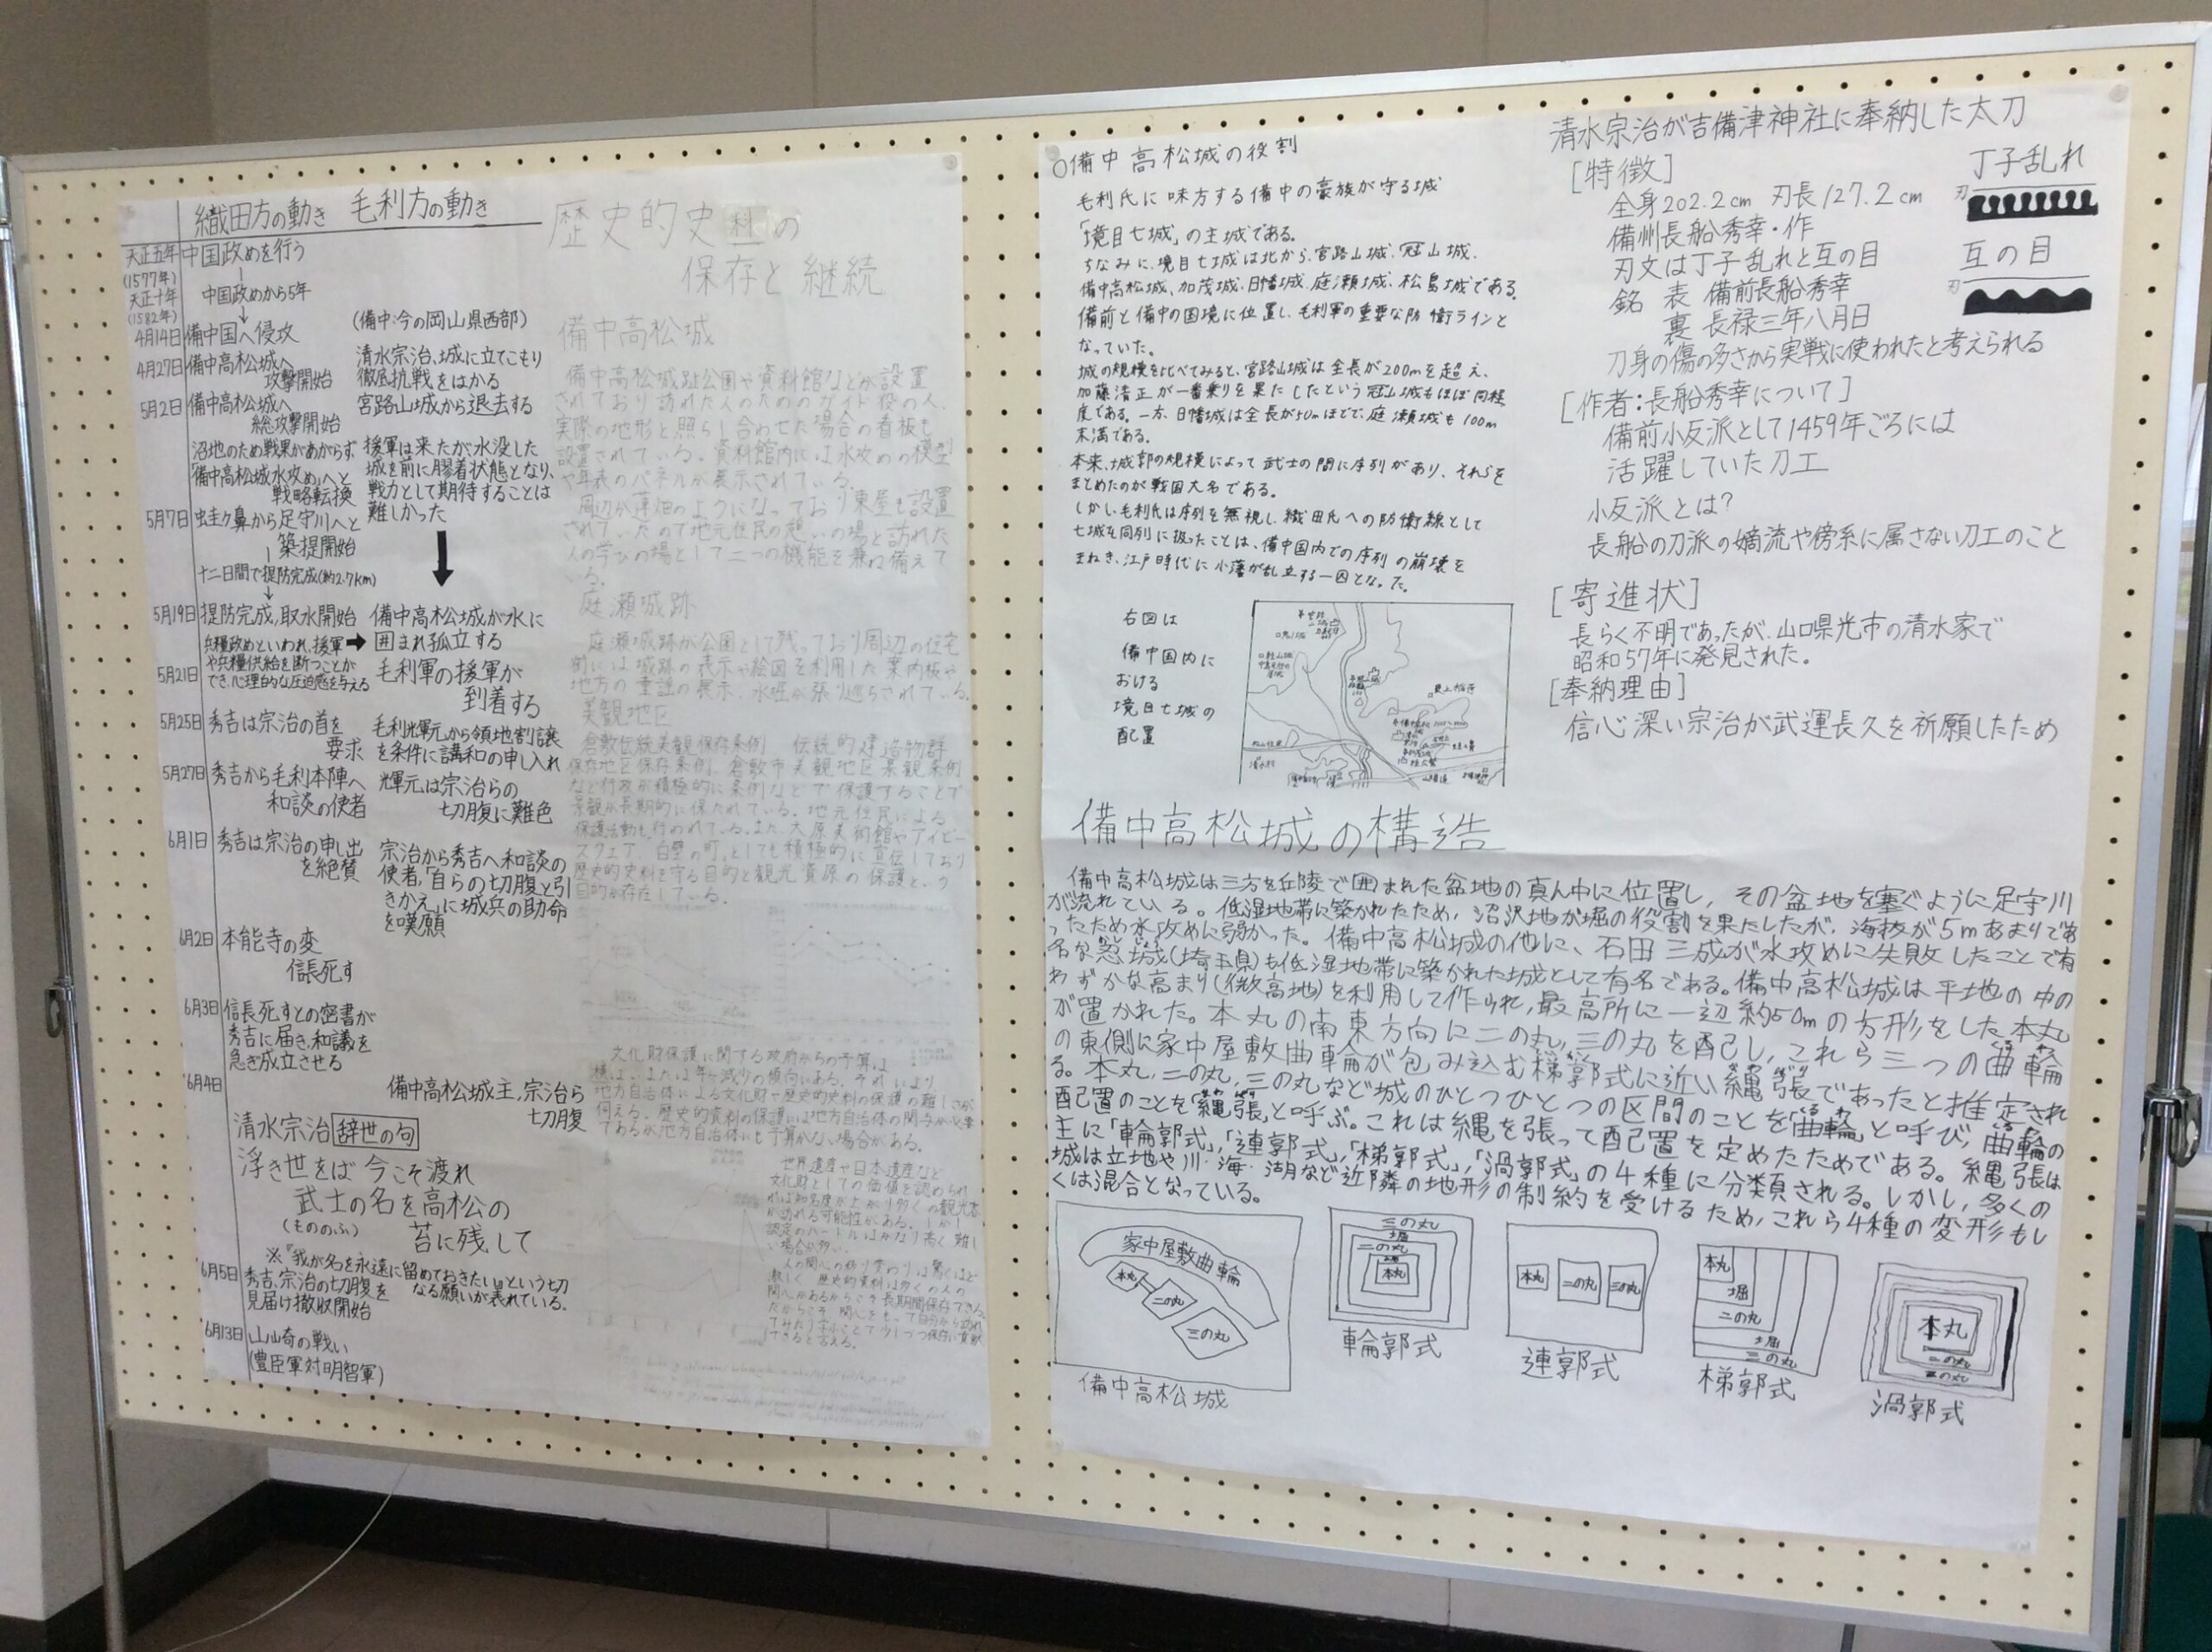 織田方の動き 毛利方の動き
天正五年 中国政めを行う
(1577年)
天正十年 中国政めから5年
(1582年)
(備中:今の岡山県西部)
4月14日 備中国へ侵攻
4月27日 備中高松城へ
攻撃開始
清水宗治、城に立てこもり
徹底抗戦をはかる
5月2日 備中高松城へ
総攻撃開始
宮路山城から退去する
沼地のため戦果があがらず
「備中高松城水攻め」へと
戦略転換
援軍は来たが水没した
城を前に膠着状態となり、
戦力として期待することは
難しかった
5月7日 蛙ヶ鼻から足守川へと
築提開始
十二日間で提防完成(約2.7km)
5月19日 提防完成,取水開始
備中高松城が水に
囲まれ孤立する
兵糧政めといわれ、援軍
や兵糧供給を断つことが
でき、心理的な圧迫感を与える
5月21日 毛利軍の援軍が
到着する
5月25日 秀吉は宗治の首を
要求
毛利輝元から領地割譲
を条件に講和の申し入れ
5月27日 秀吉から毛利本陣へ
和談の使者
輝元は宗治らの
切腹に難色
6月1日 秀吉は宗治の申し出
を絶賛
宗治から秀吉へ和談の
使者,「自らの切腹と引
きかえ」に城兵の助命
を嘆願
6月2日 本能寺の変
信長死す
6月3日 信長死すとの密書が
秀吉に届き、和議を
急ぎ成立させる
6月4日 備中高松城主、宗治ら
切腹
清水宗治 辞世の句
浮き世をば 今こそ渡れ
武士の名を高松の
(もののふ)
苔に残して
※『我が名を永遠に留めておきたい』という切
なる願いが表れている。
6月5日 秀吉、宗治の切腹を
見届け撤収開始
6月13日 山崎の戦い
(豊臣軍対明智軍)
歴史的史料の
保存と継続
備中高松城
備中高松城趾公園や資料館などが設置
されており訪れた人のためのガイド役の人、
実際の地形と照らし合わせた場合の看板も
設置されている。資料館内には水攻めの模型
や年表のパネルが展示されている。
周辺が蓮畑のようになっており東屋も設置
されていたので地元住民の憩いの場と訪れた
人の学びの場として二つの機能を兼ね備えて
いる。
庭瀬城跡
庭瀬城跡が公園として残っており周辺の住宅
側には城跡の表示や絵図を利用した案内板や
地方の童謡の展示、水堀が張り巡らされている。
美観地区
倉敷伝統美観保存条例 伝統的建造物群
保存地区保存条例、倉敷市美観地区景観条例
など行政が積極的に条例などで保護することで
景観が長期的に保たれている。地元住民による
保護活動も行われている。また、大原美術館やアイビー
スクエア、白壁の町、としても積極的に宣伝しており
歴史的史料を守る目的と観光資源の保護という
目的が存在している。
文化財保護に関する政府からの予算は
横ばいまたは年々減少の傾向にある。それにより
地方自治体による文化財や歴史的史料の保護の難しさが
伺える。歴史的資料の保護には地方自治体の関与が必要
であるが地方自治体にも予算がない場合がある。
世界遺産や日本遺産など
文化財としての価値を認められ
れば知名度が上がり多くの観光客
が訪れる可能性がある。しかし
認定のハードルはかなり高く難し
い場合が多い。
○備中高松城の役割
毛利氏に味方する備中の豪族が守る城
「境目七城」の主城である。
ちなみに、境目七城は北から、宮路山城、冠山城、
備中高松城、加茂城、日幡城、庭瀬城、松島城である。
備前と備中の国境に位置し、毛利軍の重要な防衛ラインと
なっていた。
城の規模を比べてみると、宮路山城は全長が200mを超え、
加藤清正が一番乗りを果たしたという冠山城もほぼ同程
度である。一方、日幡城は全長が50mほどで、庭瀬城も100m
未満である。
本来、城郭の規模によって武士の間に序列があり、それらを
まとめたのが戦国大名である。
しかし、毛利氏は序列を無視し、織田氏への防衛線として
七城を同列に扱ったことは、備中国内での序列の崩壊を
まねき、江戸時代に小藩が乱立する一因となった。
右図は
備中国内に
おける
境目七城の
配置
清水宗治が吉備津神社に奉納した太刀
[特徴]
全身202.2cm 刃長127.2cm
備州長船秀幸・作
刃文は丁子乱れと互の目
銘 表 備前長船秀幸
裏 長禄三年八月日
刀身の傷の多さから実戦に使われたと考えられる
丁子乱れ
刃
互の目
刃
[作者:長船秀幸について]
備前小反派として1459年ごろには
活躍していた刀工
小反派とは?
長船の刀派の嫡流や傍系に属さない刀工のこと
[寄進状]
長らく不明であったが、山口県光市の清水家で
昭和57年に発見された。
[奉納理由]
信心深い宗治が武運長久を祈願したため
備中高松城の構造
備中高松城は三方を丘陵で囲まれた盆地の真ん中に位置し、その盆地を塞ぐように足守川
が流れている。低湿地帯に築かれたため、沼沢地が堀の役割を果たしたが、海抜が5mあまりであ
ったため水攻めに弱かった。備中高松城の他に、石田三成が水攻めに失敗したことで有
名な忍城(埼玉県)も低湿地帯に築かれた城として有名である。備中高松城は平地の中の
わずかな高まり(微高地)を利用して作られ,最高所に一辺約50mの方形をした本丸
が置かれた。本丸の南東方向に二の丸,三の丸を配し,これら三つの曲輪
の東側に家中屋敷曲輪が包み込む梯郭式に近い縄張であったと推定され
る。本丸,二の丸,三の丸など城のひとつひとつの区間のことを「曲輪」と呼び,曲輪の
配置のことを「縄張」と呼ぶ。これは縄を張って配置を定めたためである。縄張は
主に「輪郭式」,「連郭式」,「梯郭式」,「渦郭式」の4種に分類される。しかし,多くの
城は立地や川・海・湖など近隣の地形の制約を受けるため,これら4種の変形もし
くは混合となっている。
家中屋敷曲輪
本丸
二の丸
三の丸
備中高松城
三の丸
堀
二の丸
本丸
輪郭式
本丸 二の丸 三の丸
連郭式
本丸
堀
二の丸
堀
三の丸
梯郭式
本丸
二の丸
三の丸
渦郭式